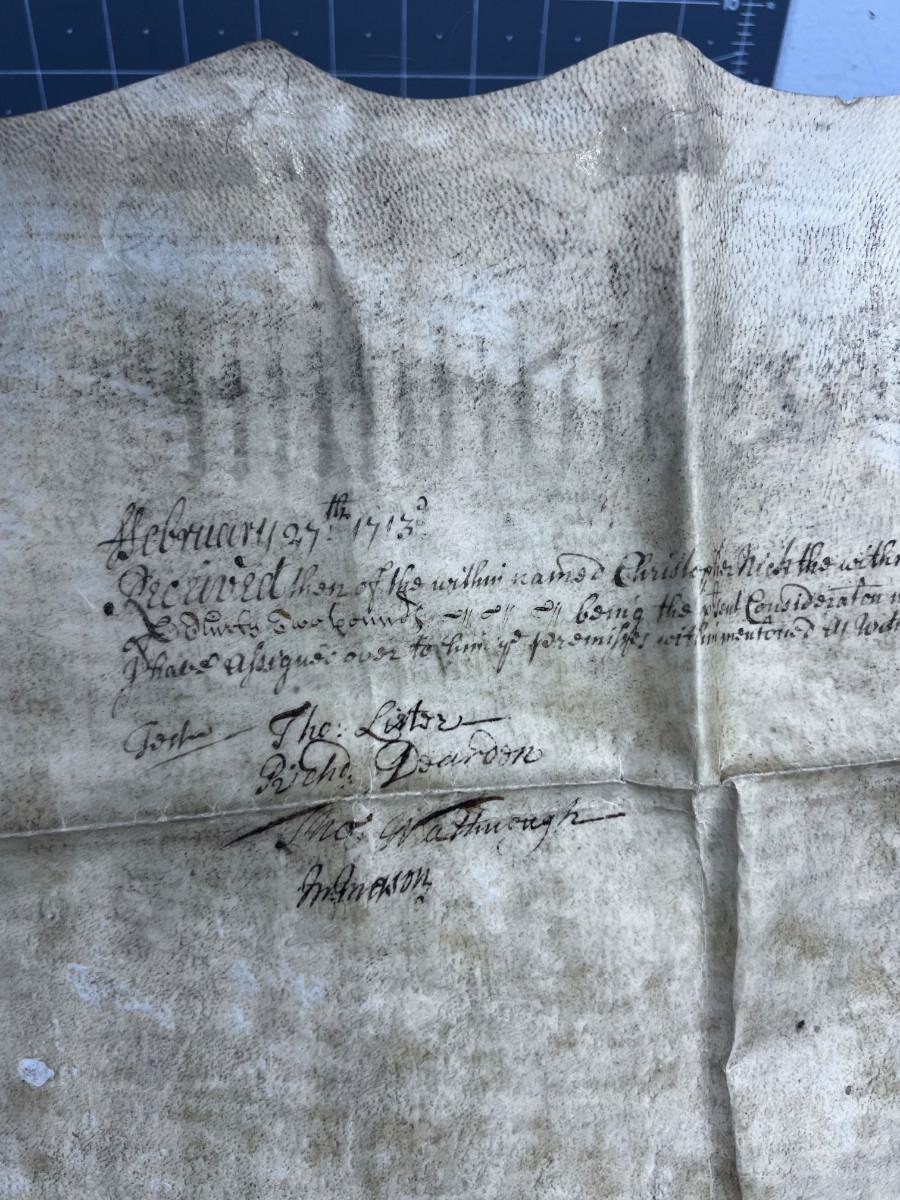 February 27th: 1713
Received then of the within named Christopher the within
two pounds being the Consideration
I have assigned over to him ye premisses within mentioned As Witn
Teste Tho: Lister
Richd: Dearden
Tho: Wathnough